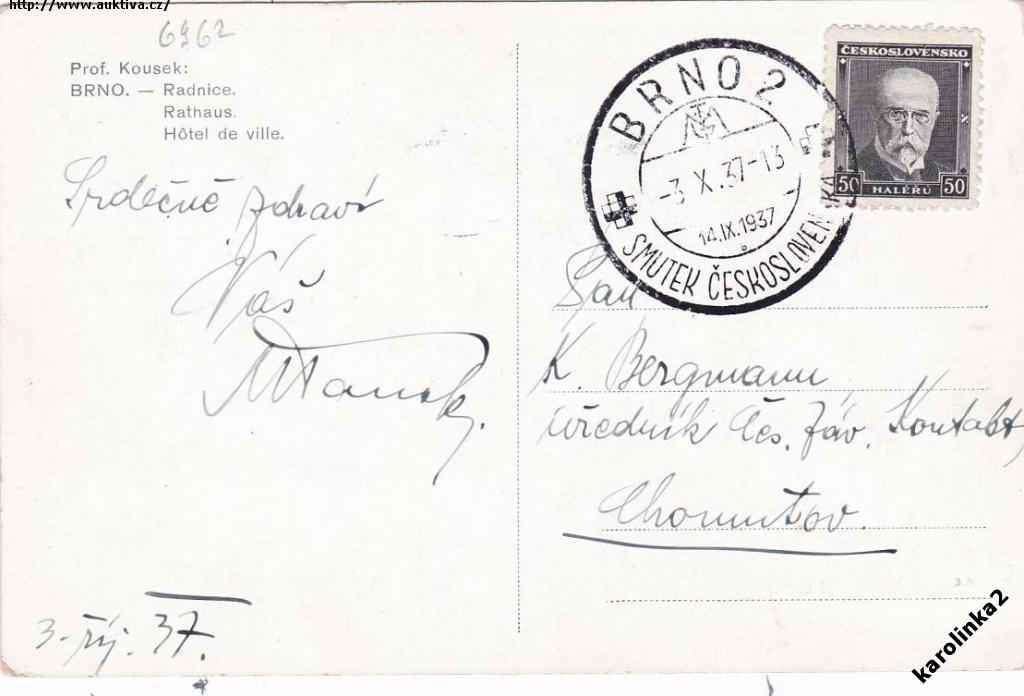 http://www.auktiva.cz/
6962
Prof. Kousek:
BRNO. — Radnice.
Rathaus.
Hôtel de ville.
Srdečně zdraví
Váš
3. říj. 37.
BRNO 2
-3.X.37-13
14.IX.1937
b
SMUTEK ČESKOSLOVENSKA
ČESKOSLOVENSKO
50 HALÉŘŮ 50
Pan
K. Bergmann
úředník Čes. záv. Kontakt,
Chomutov.
karolinka2